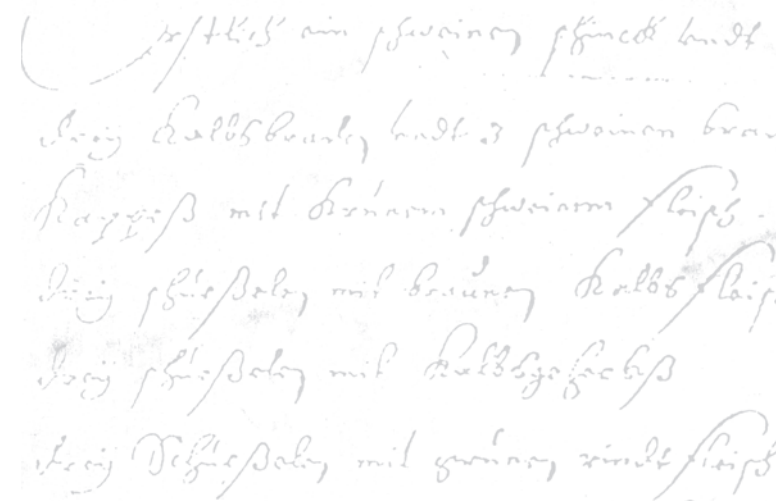 Erstlich ein schweinen schinckh sendt
dreÿ Kalbsbraden sendt 3 schweinen bra
Kappeß mit Krünem schweinem fleisch.
dreÿ schüeßelen mit braunen Kalbsfleis
dreÿ schüeßelen mit Kalbsgeheckß
dreÿ Schüeßelen mit grünen rindtfleisch